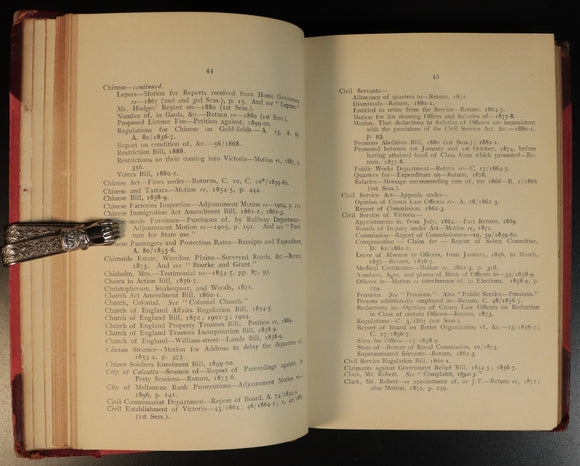 44
Chinese—continued.
Lepers—Motion for Reports received from Home Government
re—1867 (2nd and 3rd Sess.), p. 15. And see "Lepers."
Mr. Hodges' Report on—1880 (1st Sess.).
Number of, in Gaols, &c.—Return re—1880-6 (1st Sess.).
Proposed Licence Fee—Petition against, 1899-00.
Regulations for Chinese on Gold-fields—A. 13, A. 65,
A. 80/1856-7.
Report on condition of, &c.—56/1868.
Restriction Bill, 1888.
Restrictions on their coming into Victoria—Motion re, 1887, p.
356.
Voters Bill, 1880-1.
Chinese Act—Fines under—Returns, C. 10, C. 10ª/1859-60.
Chinese and Tartars—Motion re, 1854-5, p. 444.
Chinese Bill, 1858-9.
Chinese Factories Inspection—Adjournment Motion re, 1904, p. 151.
Chinese Immigration Act Amendment Bill, 1861-2, 1862-3.
Chinese-made Furniture—Purchases of, by Railway Department—
Adjournment Motion re—1905, p. 191. And see "Furniture
for State use."
Chinese Passengers and Protection Rates—Receipts and Expenditure,
A. 80/1855-6.
Chirnside Estate, Werribee Plains—Surveyed Roads, &c.—Return,
1873. And see "Bourke and Grant."
Chisholm, Mrs.—Testimonial to—1854-5, pp. 87, 95.
Choses in Action Bill, 1856-7.
Christopherson, Shakespear, and Woods, 1871.
Church Act Amendment Bill, 1880-1.
Church, Colonial. See "Colonial Church."
Church of England Affairs Regulation Bill, 1854-5.
Church of England Bill, 1872; 1873; 1905; 1904.
Church of England Property Trustees Bill, Petition re, 1884.
Church of England Trustees Incorporation Bill, 1858-9.
Church of England—William-street—Lands Bill, 1880-1.
Chusan Steamer—Motion for Address to delay the departure of,
1853-4, p. 375.
Citizen Soldiers Enrolment Bill, 1899-00.
City of Calcutta—Seamen of—Report of Proceedings against, in
Petty Sessions—Return, 1875-6.
City of Melbourne Bank Prosecutions—Adjournment Motion re,
1896, p. 141.
Civil Commissariat Department—Report of Board, A. 74/1852-3.
Civil Establishment of Victoria—43/1864; 46/1864-5; 1, 46/1867
(1st Sess.).
45
Civil Servants—
Allowance of quarters to—Return, 1871.
Dismissals—Return, 1880-1.
Entitled to retire from the Service—Return, 1864-5.
Motion for list showing Offices and Salaries of—1877-8.
Motion, That deductions in Salaries of Officers are inconsistent
with the provisions of the Civil Service Act, &c.—1880-1,
p. 93.
Pensions Abolition Bill, 1880 (1st Sess.); 1880-1.
Promoted between 1st January and 1st October, 1874, before
having attained head of Class from which promoted—Re-
turn, 1877-8.
Public Works Department—Return re—C. 17/1864-5.
Quarters for—Expenditure on—Return, 1878.
Salaries—Message recommending rate of, for 1866—B. 2/1866
(1st Sess.).
Civil Service Act—Appeals under—
Opinion of Crown Law Officers re—B. 23/1862-3.
Report of Commission, 1862-3.
Civil Service of Victoria—
Appointments in, from July, 1864—Part Return, 1869.
Boards of Inquiry under Act—Motion re, 1871.
Commission—Report of Commissioners—19, 59/1859-60.
Compensation—Claim for—Report of Select Committee,
D. 62/1861-2.
Leave of Absence to Officers, from January, 1856, to March,
1857—Return, 1856-7.
Medical Certificates—Motion re, 1862-3, p. 316.
Numbers, Ages, and places of Birth of Officers in—34/1858-9.
Officers in—Motion re interference of, in Elections, 1858-9, p.
259.
See "Pensions." Also "Public Service—Pensions."
Persons additionally employed in—Return, C. 48/1856-7.
Reductions in—Opinion of Crown Law Officers on Reduction
in Class of certain Officers—Return, 1873.
Regulations—C. 5, 1867 (1st Sess.).
Report of Board on Better Organization of, &c.—6/1856-7;
C. 17/1856-7.
Sites for Offices of—13/1858-9.
State of—Report of Royal Commission, 10/1873.
Superannuated Servants—Return, 1862-3.
Civil Service Regulation Bill, 1860-1.
Claimants against Government Relief Bill, 1854-5.
Clark, Mr. Robert. See "Complaint, 1892-3."
Clark, Mr. Robert—re appointment of, as J.P.—Return re, 1872;
also Motion, 1872, p. 259.